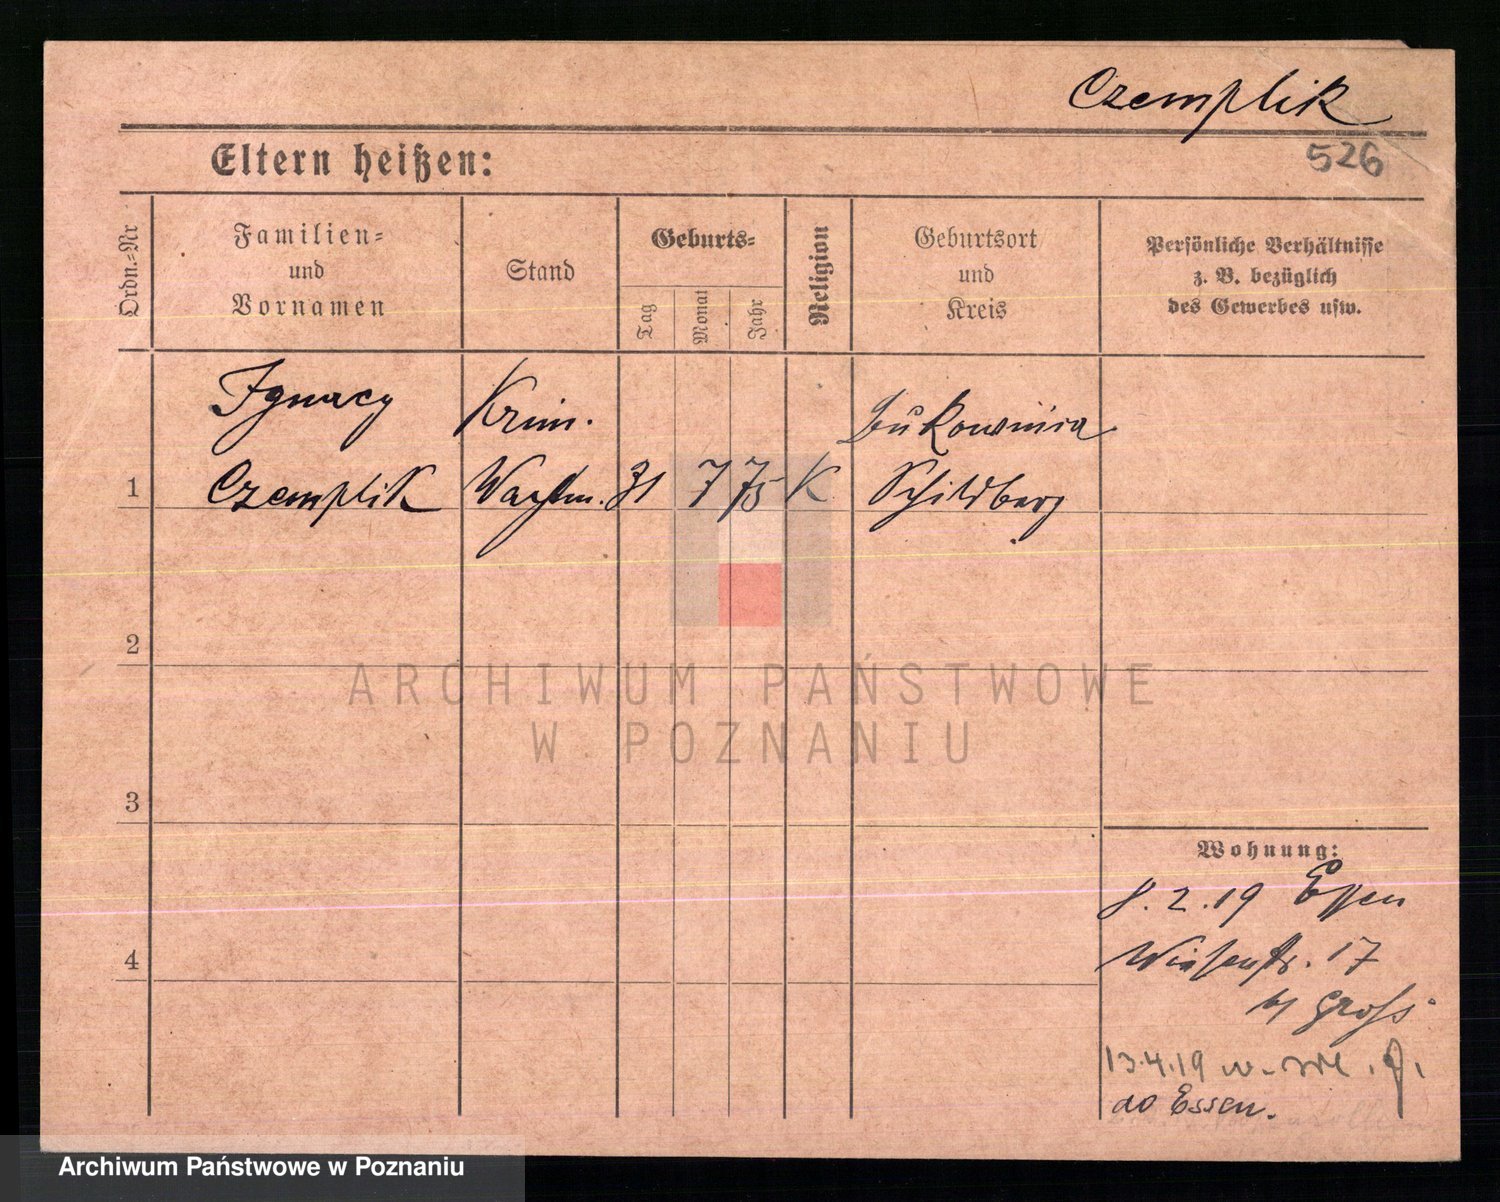 Czemplik
Eltern heißen:
526
Ordn.-Nr
Familien-
und
Vornamen
Stand
Geburts-
Tag
Monat
Jahr
Religion
Geburtsort
und
Kreis
Persönliche Verhältnisse
z. B. bezüglich
des Gewerbes usw.
Ignacy Krim. Bukownica
1 Czemplik Wachtm. 31 7 75 K Schildberg
2
3
4
Wohnung:
8.2.19 Essen
Wiesenstr. 17
Groß
13.4.19
do Essen.
ARCHIWUM PAŃSTWOWE
W POZNANIU
Archiwum Państwowe w Poznaniu